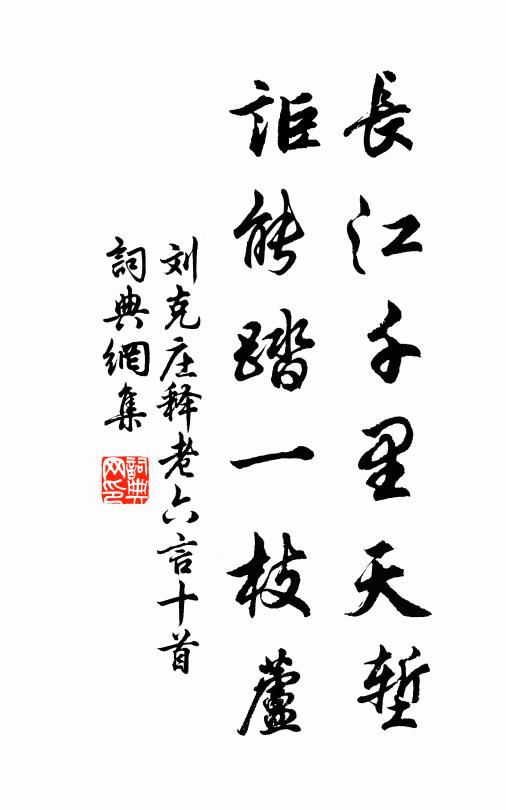 長江千里天堑
詎能踏一枝蘆
刘克庄释老六言十首
詞典網集
詞典网印